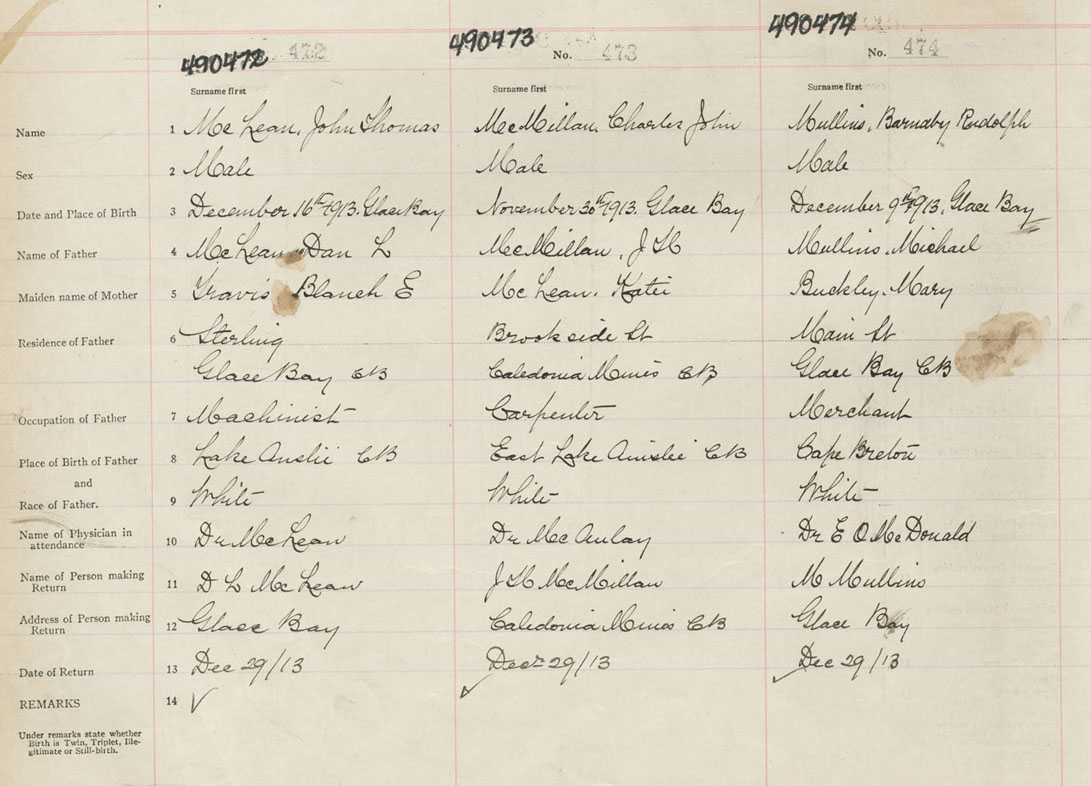 490472 472 490473 No. 473 490474 No. 474
Surname first Surname first Surname first
Name 1 McLean, John Thomas McMillan, Charles John Mullins, Barnaby Rudolph
Sex 2 Male Male Male
Date and Place of Birth 3 December 16th 1913. Glace Bay November 30th 1913. Glace Bay December 9th 1913, Glace Bay
Name of Father 4 McLean Dan L McMillan, J H Mullins, Michael
Maiden name of Mother 5 Travis Blanch E McLean, Katie Buckley, Mary
Residence of Father 6 Sterling Brookside St Main St
Glace Bay CB Caledonia Mines CB Glace Bay CB
Occupation of Father 7 Machinist Carpenter Merchant
Place of Birth of Father 8 Lake Anslie CB East Lake Ainslie CB Cape Breton
and
Race of Father. 9 White White White
Name of Physician in
attendance 10 Dr McLean Dr McAulay Dr E O McDonald
Name of Person making
Return 11 D L McLean J H McMillan M Mullins
Address of Person making
Return 12 Glace Bay Caledonia Mines CB Glace Bay
Date of Return 13 Dec 29/13 Decr 29/13 Dec 29/13
REMARKS 14
Under remarks state whether
Birth is Twin, Triplet, Ille-
gitimate or Still-birth.